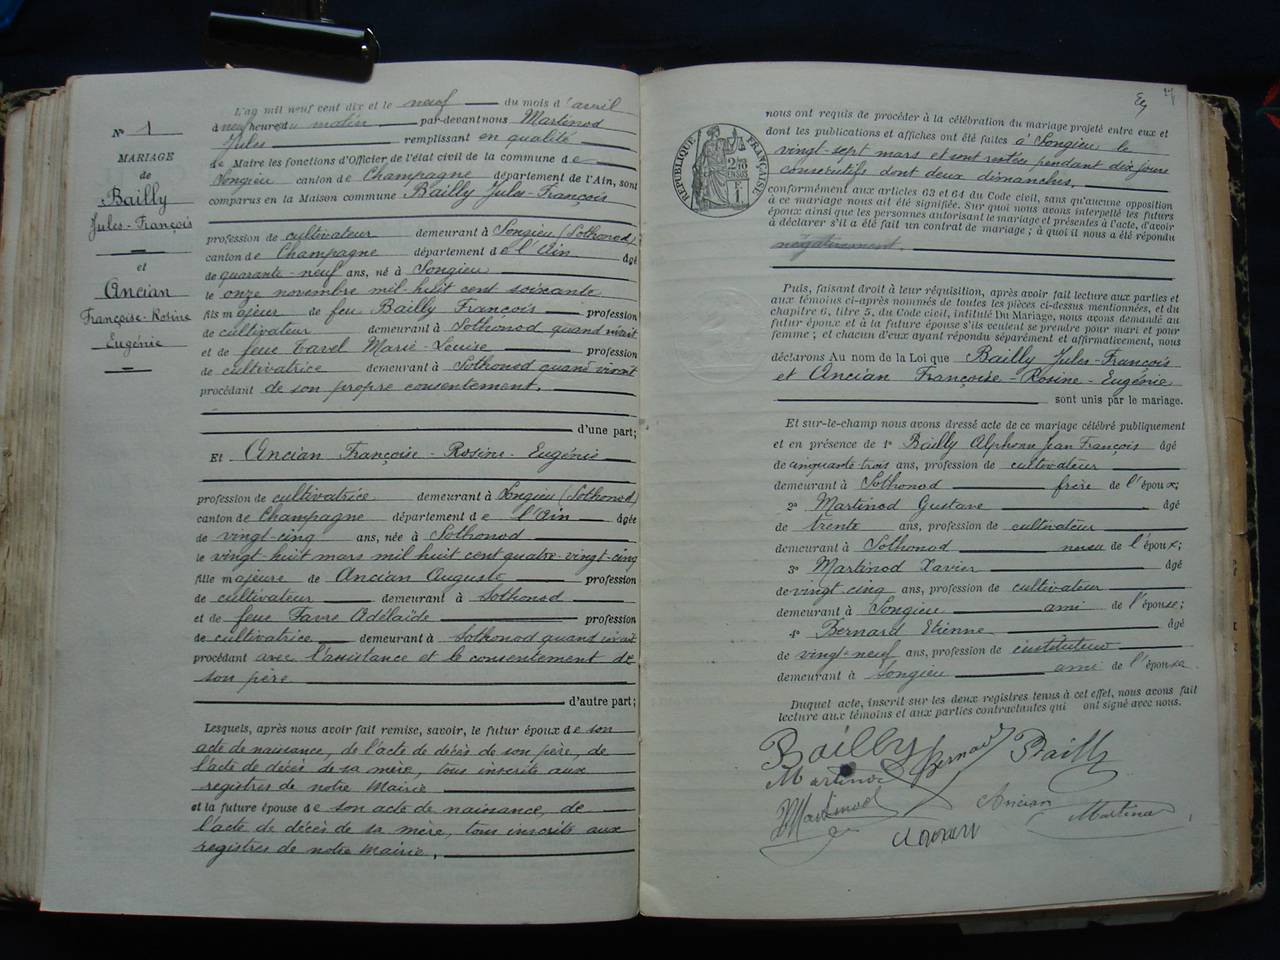 N° 1
MARIAGE
de
Bailly
Jules-François
et
Ancian
Françoise-Rosine
Eugénie
L'an mil neuf cent dix et le neuf du mois d'avril
à neuf heure du matin par-devant nous Martinod
Jules remplissant en qualité
de Maire les fonctions d'Officier de l'état civil de la commune de
Songieu canton de Champagne département de l'Ain, sont
comparus en la Maison commune Bailly Jules-François
profession de cultivateur demeurant à Songieu (Sothonod)
canton de Champagne département de l'Ain âgé
de quarante-neuf ans, né à Songieu
le onze novembre mil huit cent soixante
fils majeur de feu Bailly François profession
de cultivateur demeurant à Sothonod quand vivait
et de feue Tavel Marie-Louise profession
de cultivatrice demeurant à Sothonod quand vivait
procédant de son propre consentement.
d'une part;
Et Ancian Françoise-Rosine-Eugénie
profession de cultivatrice demeurant à Songieu (Sothonod)
canton de Champagne département de l'Ain âgée
de vingt-cinq ans, née à Sothonod
le vingt huit mars mil huit cent quatre-vingt-cinq
fille majeure de Ancian Auguste profession
de cultivateur demeurant à Sothonod
et de feue Favre Adélaïde profession
de cultivatrice demeurant à Sothonod quand vivait
procédant avec l'assistance et le consentement de
son père
d'autre part;
Lesquels, après nous avoir fait remise, savoir, le futur époux de son
acte de naissance, de l'acte de décès de son père, de
l'acte de décès de sa mère, tous inscrits aux
registres de notre Mairie
et la future épouse de son acte de naissance, de
l'acte de décès de sa mère, tous inscrits aux
registres de notre Mairie.
RÉPUBLIQUE FRANÇAISE
nous ont requis de procéder à la célébration du mariage projeté entre eux et
dont les publications et affiches ont été faites à Songieu le
vingt-sept mars et sont restées pendant dix jours
consécutifs dont deux dimanches.
conformément aux articles 63 et 64 du Code civil, sans qu'aucune opposition
à ce mariage nous ait été signifiée. Sur quoi nous avons interpellé les futurs
époux ainsi que les personnes autorisant le mariage et présentes à l'acte, d'avoir
à déclarer s'il a été fait un contrat de mariage; à quoi il nous a été répondu
négativement
Puis, faisant droit à leur réquisition, après avoir fait lecture aux parties et
aux témoins ci-après nommés de toutes les pièces ci-dessus mentionnées, et du
chapitre 6, titre 5, du Code civil, intitulé Du Mariage, nous avons demandé au
futur époux et à la future épouse s'ils veulent se prendre pour mari et pour
femme; et chacun d'eux ayant répondu séparément et affirmativement, nous
déclarons Au nom de la Loi que Bailly Jules-François
et Ancian Françoise-Rosine-Eugénie
sont unis par le mariage.
Et sur-le-champ nous avons dressé acte de ce mariage célébré publiquement
et en présence de 1° Bailly Jean François âgé
de cinquante trois ans, profession de cultivateur
demeurant à Sothonod frère de l'époux;
2° Martinod Gustave âgé
de trente ans, profession de cultivateur
demeurant à Sothonod neveu de l'époux;
3° Martinod Xavier âgé
de vingt-cinq ans, profession de cultivateur
demeurant à Songieu ami de l'épouse;
4° Bernard Etienne âgé
de vingt-neuf ans, profession de instituteur
demeurant à Songieu ami de l'épouse
Duquel acte, inscrit sur les deux registres tenus à cet effet, nous avons fait
lecture aux témoins et aux parties contractantes qui ont signé avec nous.
Bailly Bernard Bailly
Martinod
Martinod Ancian Martinod